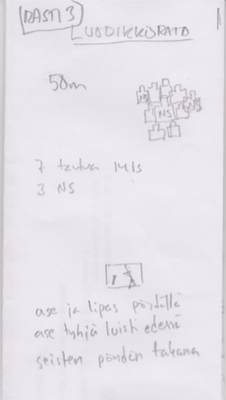 RASTI 3
LUODIKKORATA
50m
NS
NS
NS
7 taulua IPSC
3 NS
ase ja lipas pöydällä
ase tyhjä luisti edessä
seisten pöydän takana